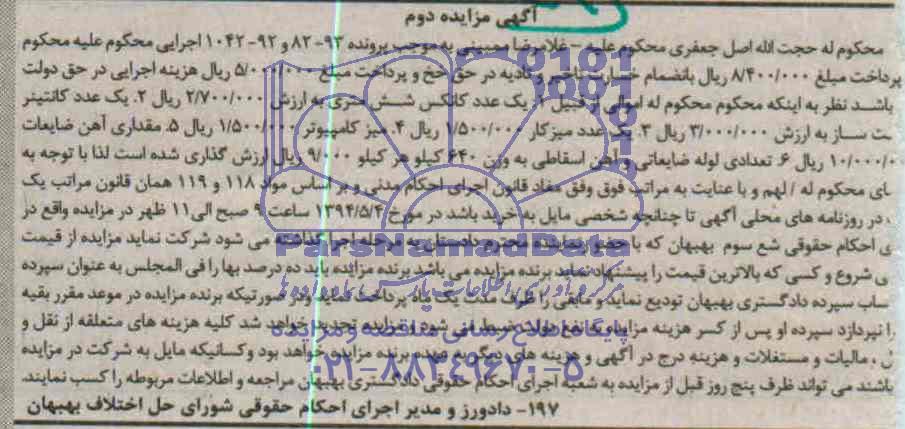 آگهی مزایده دوم
محکوم له حجت الله اصل جعفری محکوم علیه - غلامرضا ممبینی به موجب پرونده 93-82 و 92-1042 اجرایی محکوم علیه محکوم
پرداخت مبلغ 8/400/000 ریال بانضمام خسارت تاخیر و تادیه در حق خ و پرداخت مبلغ 5/000/000 ریال هزینه اجرایی در حق دولت
باشد نظر به اینکه محکوم محکوم له اموالی از قبیل 1. یک عدد کانکس شش متری به ارزش 2/700/000 ریال 2. یک عدد کانتینر
ت ساز به ارزش 3/000/000 ریال 3. یک عدد میز کار 1/500/000 ریال 4. میز کامپیوتر 1/500/000 ریال 5. مقداری آهن ضایعات
10/000/0 ریال 6. تعدادی لوله ضایعاتی و آهن اسقاطی به وزن 640 کیلو هر کیلو 9/000 ریال ارزش گذاری شده است لذا با توجه به
ای محکوم له / لهم و با عنایت به مراتب فوق وفق مفاد قانون اجرای احکام مدنی و بر اساس مواد 118 و 119 همان قانون مراتب یک
در روزنامه های محلی آگهی تا چنانچه شخصی مایل به خرید باشد در مورخ 1394/5/4 ساعت 9 صبح الی 11 ظهر در مزایده واقع در
ی احکام حقوقی شع سوم بهبهان که با حضور نماینده محترم دادستان به مرحله اجرا گذاشته می شود شرکت نماید مزایده از قیمت
ی شروع و کسی که بالاترین قیمت را پیشنهاد نماید برنده مزایده می باشد برنده مزایده باید ده درصد بها را فی المجلس به عنوان سپرده
ساب سپرده دادگستری بهبهان تودیع نماید و مابقی را ظرف مدت یک ماه پرداخت نماید و در صورتیکه برنده مزایده در موعد مقرر بقیه
را نپردازد سپرده او پس از کسر هزینه مزایده به نفع دولت ضبط می شود و مزایده تجدید خواهد شد کلیه هزینه های متعلقه از نقل و
ل، مالیات و مستغلات و هزینه درج در آگهی و هزینه های دیگر به عهده برنده مزایده خواهد بود وکسانیکه مایل به شرکت در مزایده
باشند می تواند ظرف پنج روز قبل از مزایده به شعبه اجرای احکام حقوقی دادگستری بهبهان مراجعه و اطلاعات مربوطه را کسب نمایند.
197- دادورز و مدیر اجرای احکام حقوقی شورای حل اختلاف بهبهان
ParsNamadData
۰۲۱-۸۸۳۴۹۶۷۰-۵